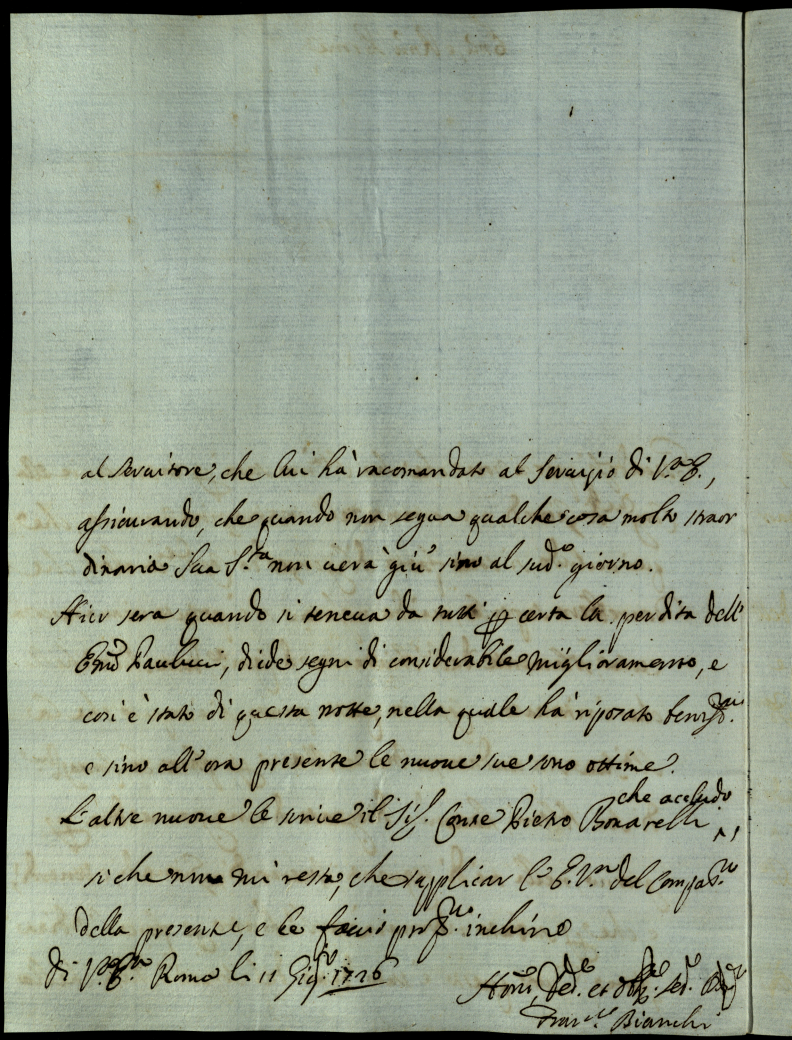 al Servitore, che lui hà racomandato al servigio di V.ra E.,
assicurando, che quando non segua qualche cosa molto straor
dinaria Sua S.tà non uerà giù sino al sud.o giorno.
Hier sera quando si teneua da tutti p certa la perdita dell'
Em̃o Paulucci, diede segni di considerabile miglioramento, e
così è stato di questa notte, nella quale hà riposato beniss.mo
e sino all'ora presente le nuoue sue sono ottime.
L'altre nuoue le scriue il Sig.r Conte Pietro Bonarelli, che accludo
si che non mi resta, che supplicar l'E.V.ra del compatim.to
della presente, e le faccio prof.mo inchino
di V.ra E.za Roma li 11 Giug.o 1726
Hum.o Deu.o et obl.o ser.
Fran.co Bianchi